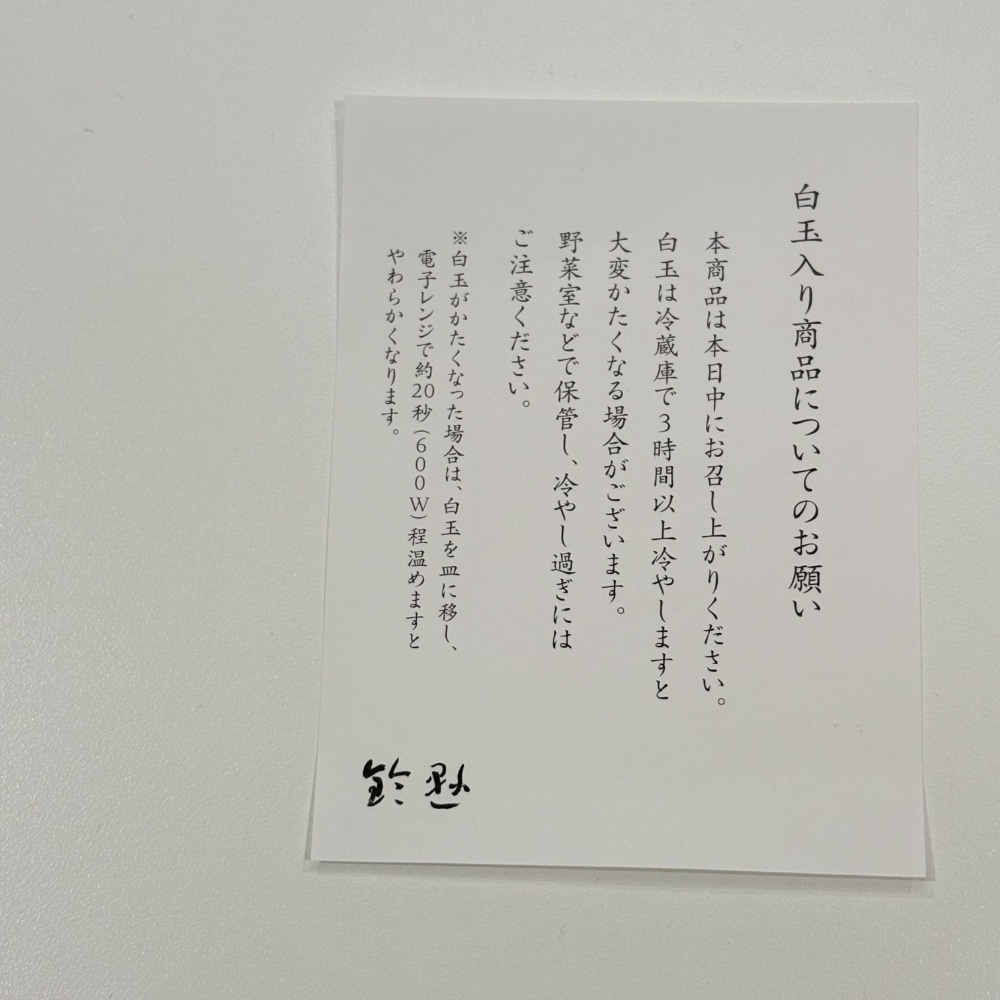 白玉入り商品についてのお願い
本商品は本日中にお召し上がりください。
白玉は冷蔵庫で3時間以上冷やしますと
大変かたくなる場合がございます。
野菜室などで保管し、冷やし過ぎには
ご注意ください。
※白玉がかたくなった場合は、白玉を皿に移し、
電子レンジで約20秒(600W)程温めますと
やわらかくなります。